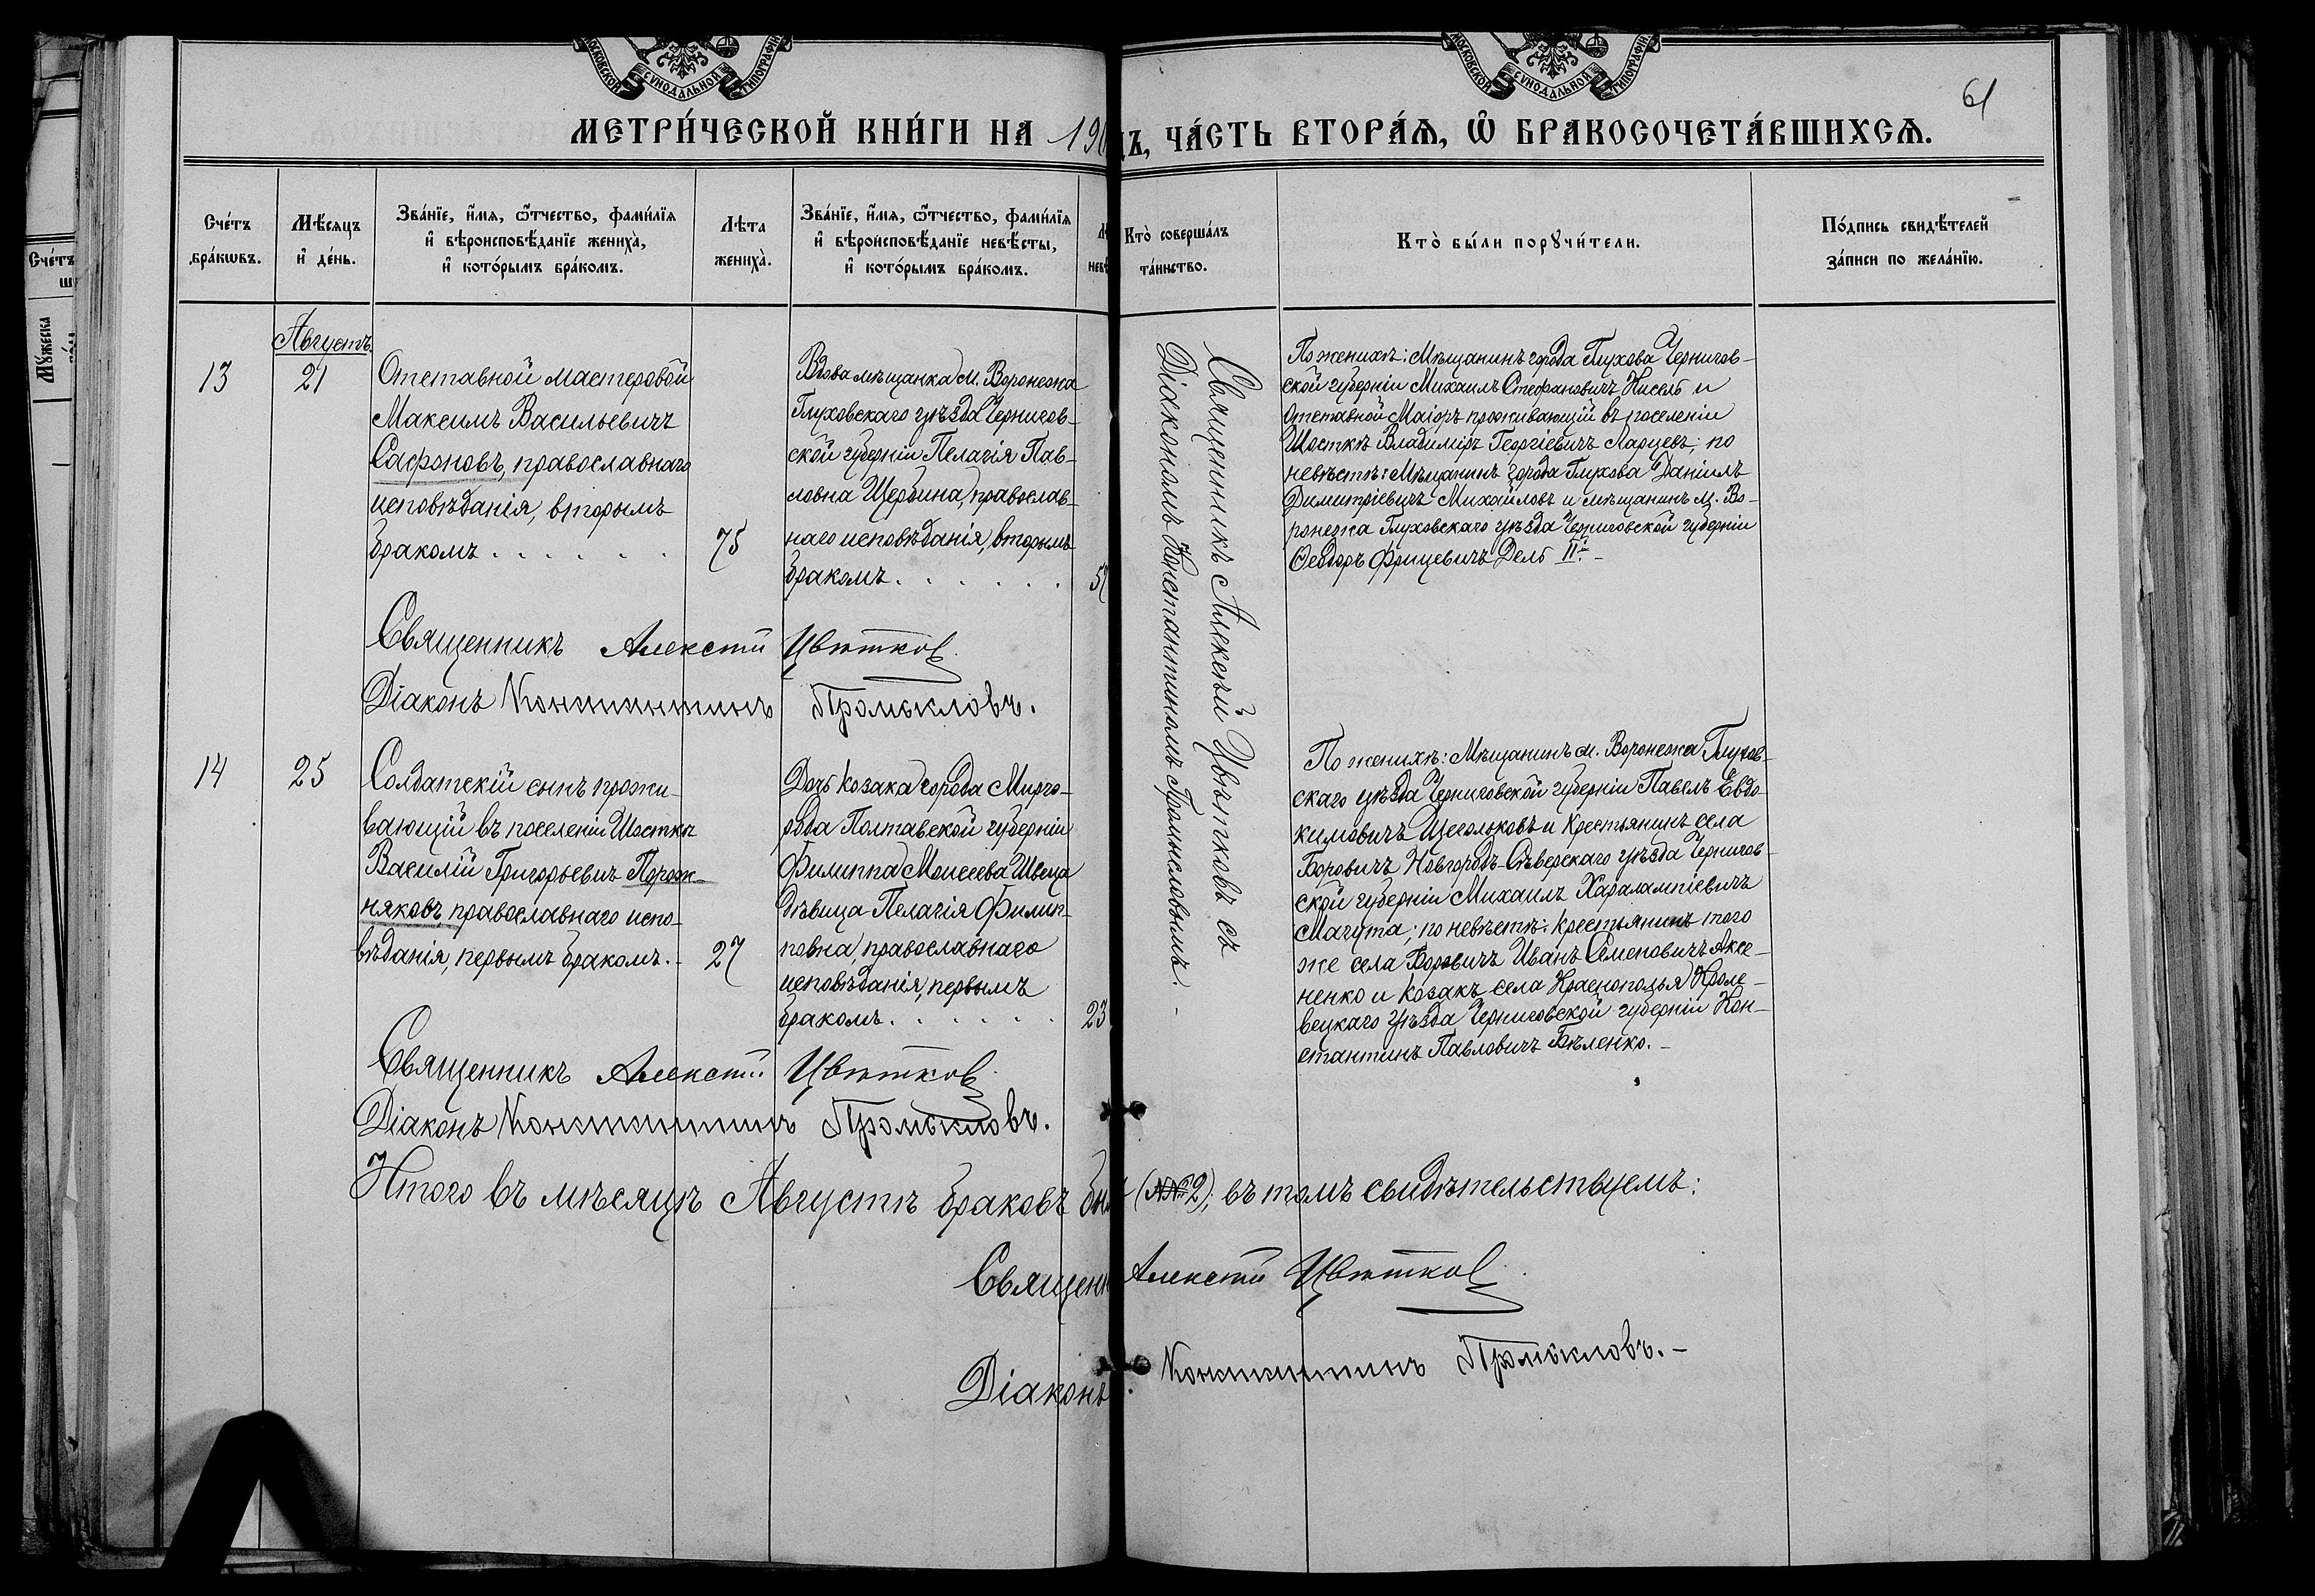 МОСКОВСКОЙ СѴНОДАЛЬНОЙ ТИПОГРАФІИ
МОСКОВСКОЙ СѴНОДАЛЬНОЙ ТИПОГРАФІИ
61
МЕТРИ́ЧЕСКОЙ КНИ́ГИ НА 190
ДЪ, ЧА́СТЬ ВТОРА́Ѧ, Ѽ БРАКОСОЧЕТА́ВШИХСѦ.
Сче́тъ
бра́кωвъ.
Мѣ́сяцъ
и҆ де́нь.
Зва́нїе, и҆́мѧ, ѻ҆́тчество, фами́лїѧ
и҆ вѣроисповѣ́данїе жениха̀,
и҆ кото́рымъ бра́комъ.
Лѣ́та
жениха̀.
Зва́нїе, и҆́мѧ, ѻ҆́тчество, фами́лїѧ
и҆ вѣроисповѣ́данїе невѣ́сты,
и҆ кото́рымъ бра́комъ.
Кто̀ соверша́лъ
та́инство.
Кто̀ бы́ли порꙋчи́тели.
По́дпись свидѣ́телей
за́писи по жела́нїю.
Сче́тъ
Мꙋ́жеска
Августъ.
13
21
Отставной мастеровой
Максимъ Васильевичъ
Сафоновъ, православнаго
исповѣданія, вторымъ
бракомъ . . . . . .
75
Вдова мѣщанка м. Воронежа
Глуховскаго уѣзда Чернигов-
ской губерніи Пелагія Пав-
ловна Щербина, православ-
наго исповѣданія, вторымъ
бракомъ . . . . . .
Священникъ Алексѣй Цвѣтковъ с
Діакономъ Константиномъ Промысловымъ.
По женихѣ: Мѣщанинъ города Глухова Чернигов-
ской губерніи Михаилъ Стефановичъ Кисель и
Отставной Маіоръ проживающій въ поселеніи
Шосткѣ Владиміръ Георгіевичъ Ларцевъ; по
невѣстѣ: Мѣщанинъ города Глухова Даніилъ
Димитріевичъ Михайловъ и мѣщанинъ м. Во-
ронежа Глуховскаго уѣзда Черниговской губерніи
Ѳеодоръ Фрицевичъ Дель II-й.
Священникъ Алексѣй Цвѣтков
Діаконъ Константинъ Промысловъ.
14
25
Солдатскій сынъ прожи-
вающій въ поселеніи Шосткѣ
Василій Григорьевич Порож-
няковъ, православнаго испо-
вѣданія, первымъ бракомъ. -
27
Дочь козака города Мирго-
рода Полтавской губерніи
Филиппа Моисеева Швеца
дѣвица Пелагія Филип-
повна, православнаго
исповѣданія, первымъ
бракомъ . . . . . .
23
По женихѣ: Мѣщанинъ м. Воронежа Глухов-
скаго уѣзда Черниговской губерніи Павелъ Евдо-
кимовичъ Щегольковъ и Крестьянинъ села
Боровичъ Новгородъ-Сѣверскаго уѣзда Чернигов-
ской губерніи Михаилъ Харалампіевичъ
Мачута; по невѣстѣ: Крестьянинъ того
же села Боровичъ Иванъ Семеновичъ Аксе-
ненко и Козакъ села Краснополья Кроле-
вецкаго уѣзда Черниговской губерніи Кон-
стантинъ Павловичъ Бѣленко. -
Священникъ Алексѣй Цвѣтков
Діаконъ Константинъ Промысловъ.
Итого въ мѣсяцѣ Августѣ браковъ (№№ 2); въ томъ свидѣтельствуемъ:
Священ Алексѣй Цвѣтков
Діаконъ Константинъ Промысловъ. -